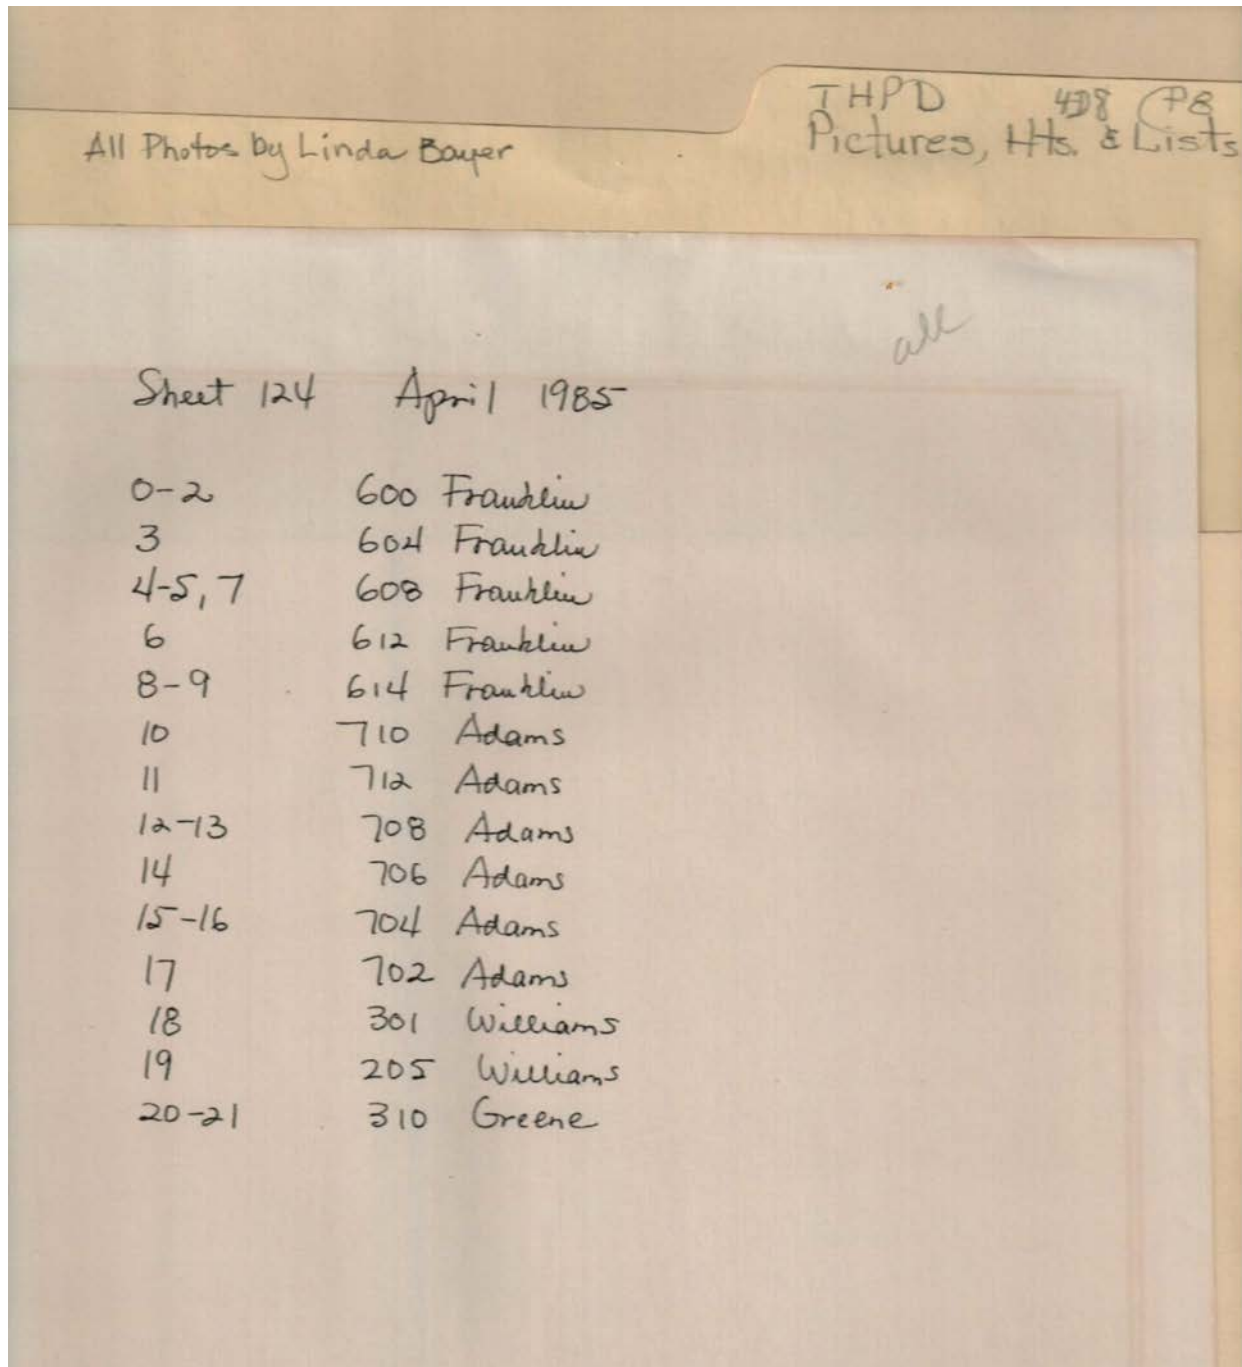 THPD 408 P8
Pictures, Hts. & Lists
All Photos by Linda Bayer
all
Sheet 124 April 1985
0-2 600 Franklin
3 604 Franklin
4-5, 7 608 Franklin
6 612 Franklin
8-9 614 Franklin
10 710 Adams
11 712 Adams
12-13 708 Adams
14 706 Adams
15-16 704 Adams
17 702 Adams
18 301 Williams
19 205 Williams
20-21 310 Greene